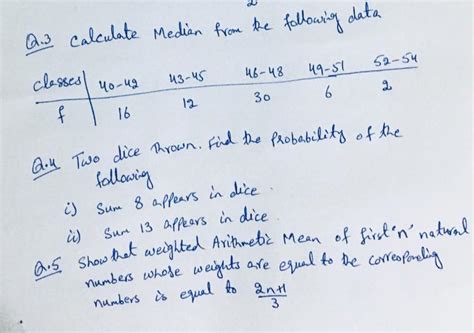 Q.3 Calculate Median from the following data
classes 40-42 43-45 46-48 49-51 52-54
f 16 12 30 6 2
Q.4 Two dice thrown. Find the Probability of the
following
i) Sum 8 appears in dice.
ii) Sum 13 appears in dice.
Q.5 Show that weighted Arithmetic Mean of first 'n' natural
numbers whose weights are equal to the corresponding
numbers is equal to 2n+1/3